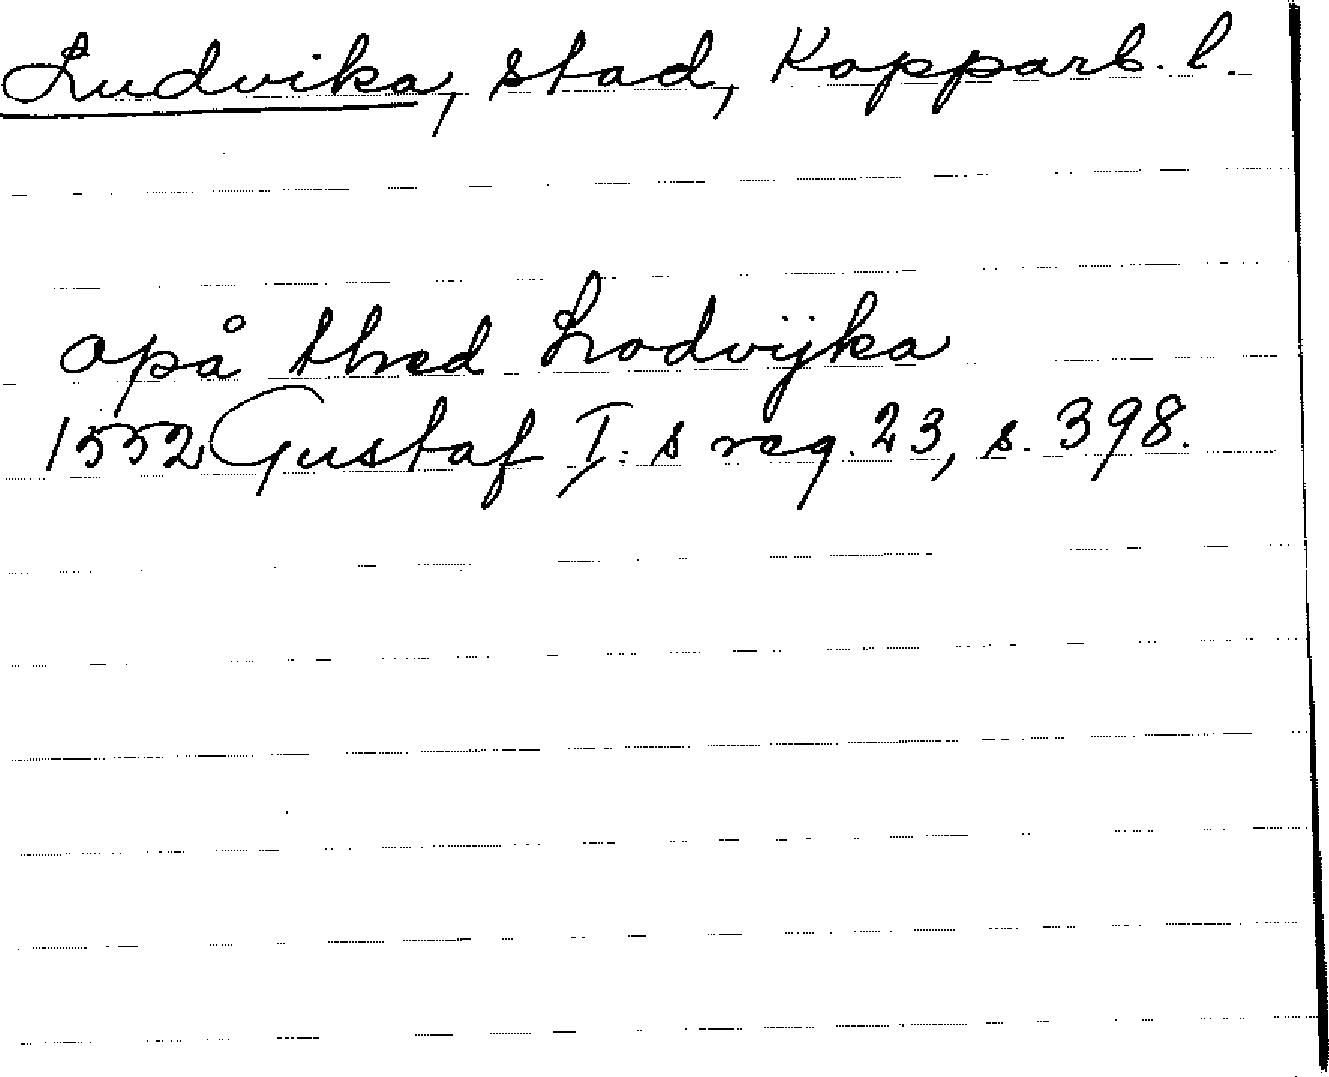 Ludvika, stad, Kopparb. l.
opå thed Lodvijka
1552 Gustaf I: s reg. 23, s. 398.